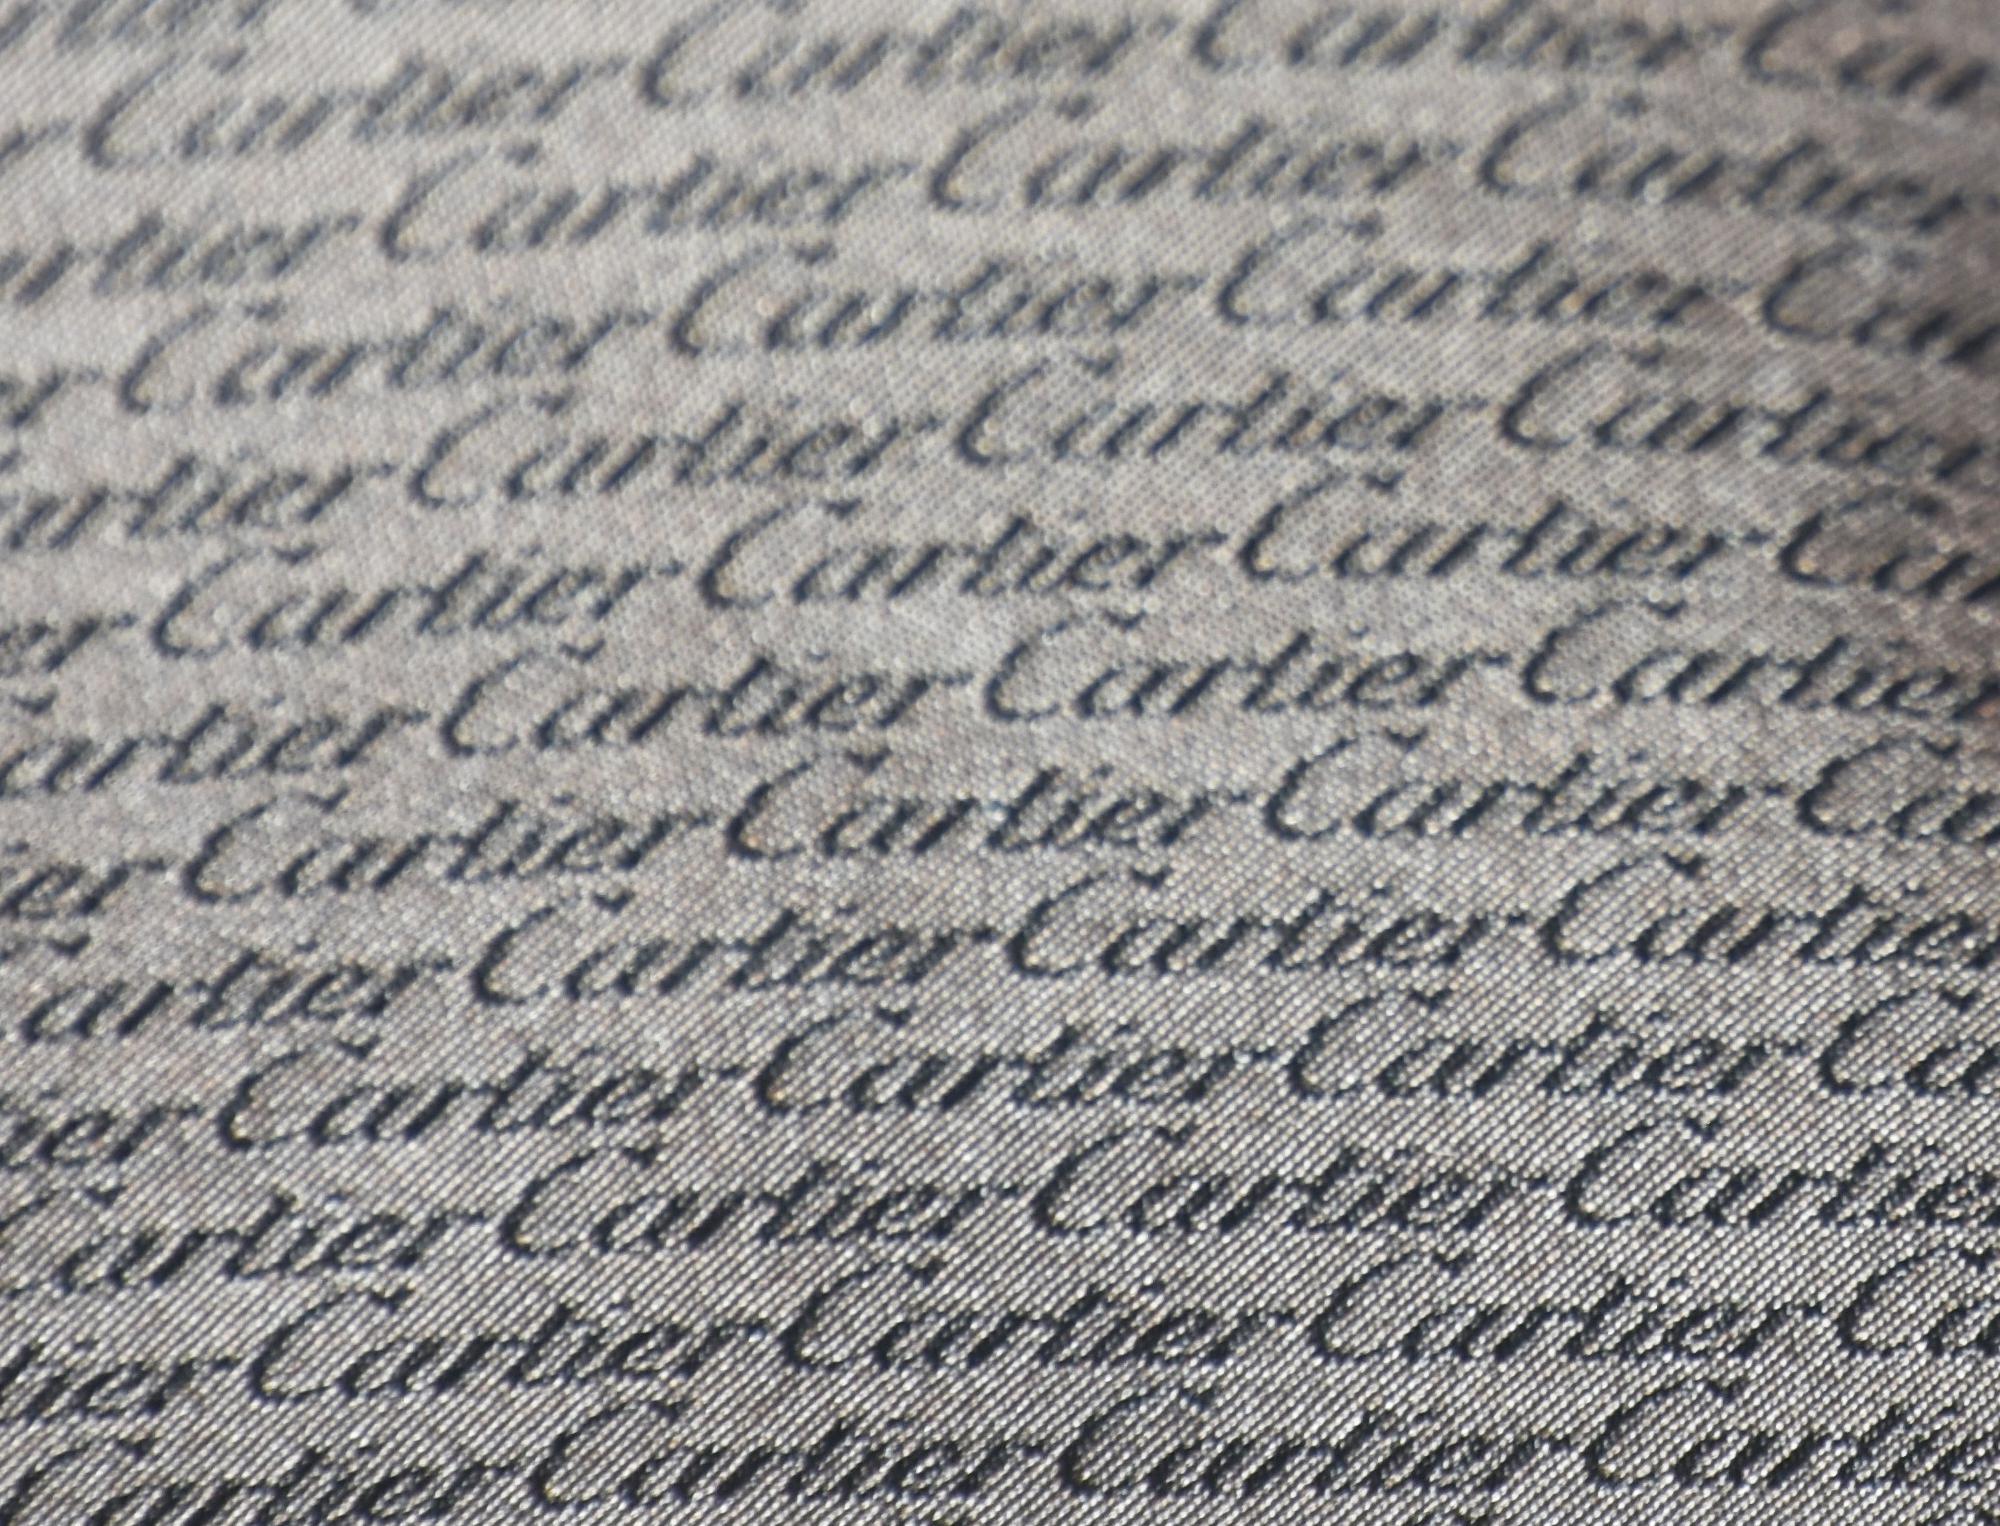 Cartier Cartier Cartier
Cartier Cartier
Cartier Cartier Cartier
Cartier Cartier Cartier
Cartier Cartier Cartier
Cartier Cartier Cartier
Cartier Cartier Cartier Cartier
Cartier Cartier Cartier
Cartier Cartier Cartier Cartier
Cartier Cartier Cartier
Cartier Cartier Cartier Cartier
Cartier Cartier Cartier
Cartier Cartier Cartier Cartier